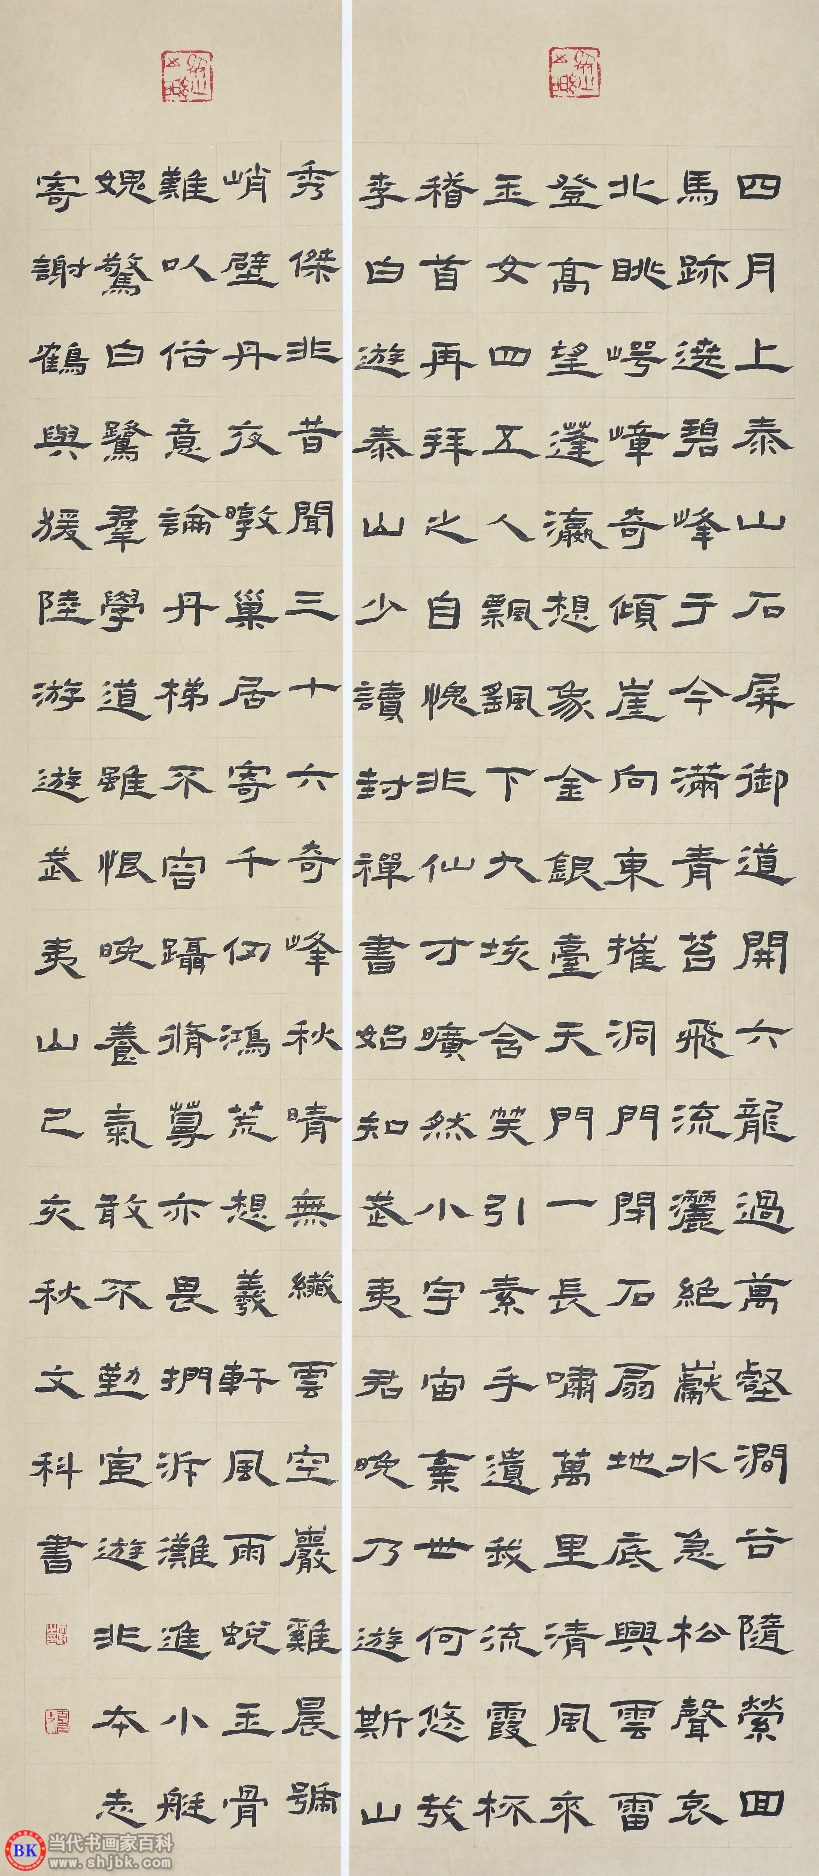 四月上泰山石屏御道開六龍過萬壑澗谷隨縈回
馬跡遶碧峰于今滿青苔飛流灑絕巘水急松聲哀
北眺崿嶂奇傾崖向東摧洞門閉石扇地底興雲雷
登高望蓬瀛想象金銀臺天門一長嘯萬里清風來
玉女四五人飄颻下九垓含笑引素手遺我流霞杯
稽首再拜之自愧非仙才曠然小宇宙棄世何悠哉
李白遊泰山少讀封禪書始知武夷君晚乃遊斯山
秀傑非昔聞三十六奇峰秋晴無纖雲空巖雞晨號
峭壁丹夜暾巢居寄千仞鴻荒想羲軒風雨蛻玉骨
難以俗意論丹梯不容躡脩蔓亦畏捫泝灘進小艇
媿驚白鷺羣學道雖恨晚養氣敢不勤宦遊非本志
寄謝鶴與猨陸游遊武夷山己亥秋文科書
BK 当代书画家百科
www.shjbk.com